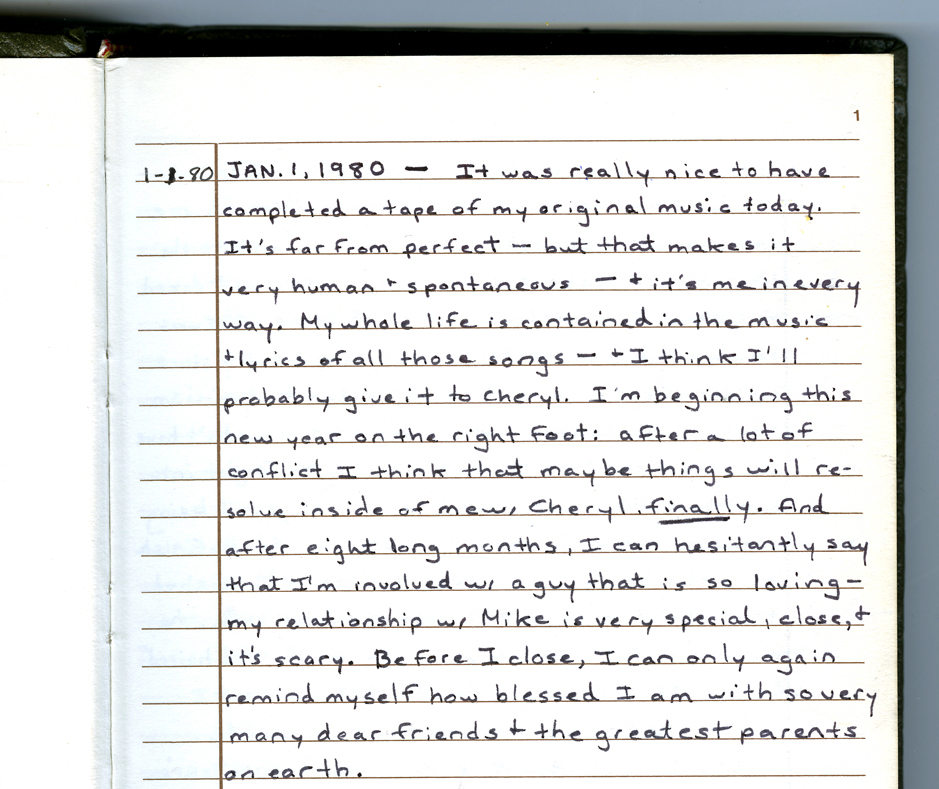 1
1-1-80 JAN. 1, 1980 — It was really nice to have
completed a tape of my original music today.
It's far from perfect — but that makes it
very human + spontaneous — + it's me in every
way. My whole life is contained in the music
+ lyrics of all those songs — + I think I'll
probably give it to Cheryl. I'm beginning this
new year on the right foot: after a lot of
conflict I think that maybe things will re-
solve inside of me w/ Cheryl, finally. And
after eight long months, I can hesitantly say
that I'm involved w/ a guy that is so loving —
my relationship w/ Mike is very special, close, +
it's scary. Before I close, I can only again
remind myself how blessed I am with so very
many dear friends + the greatest parents
on earth.